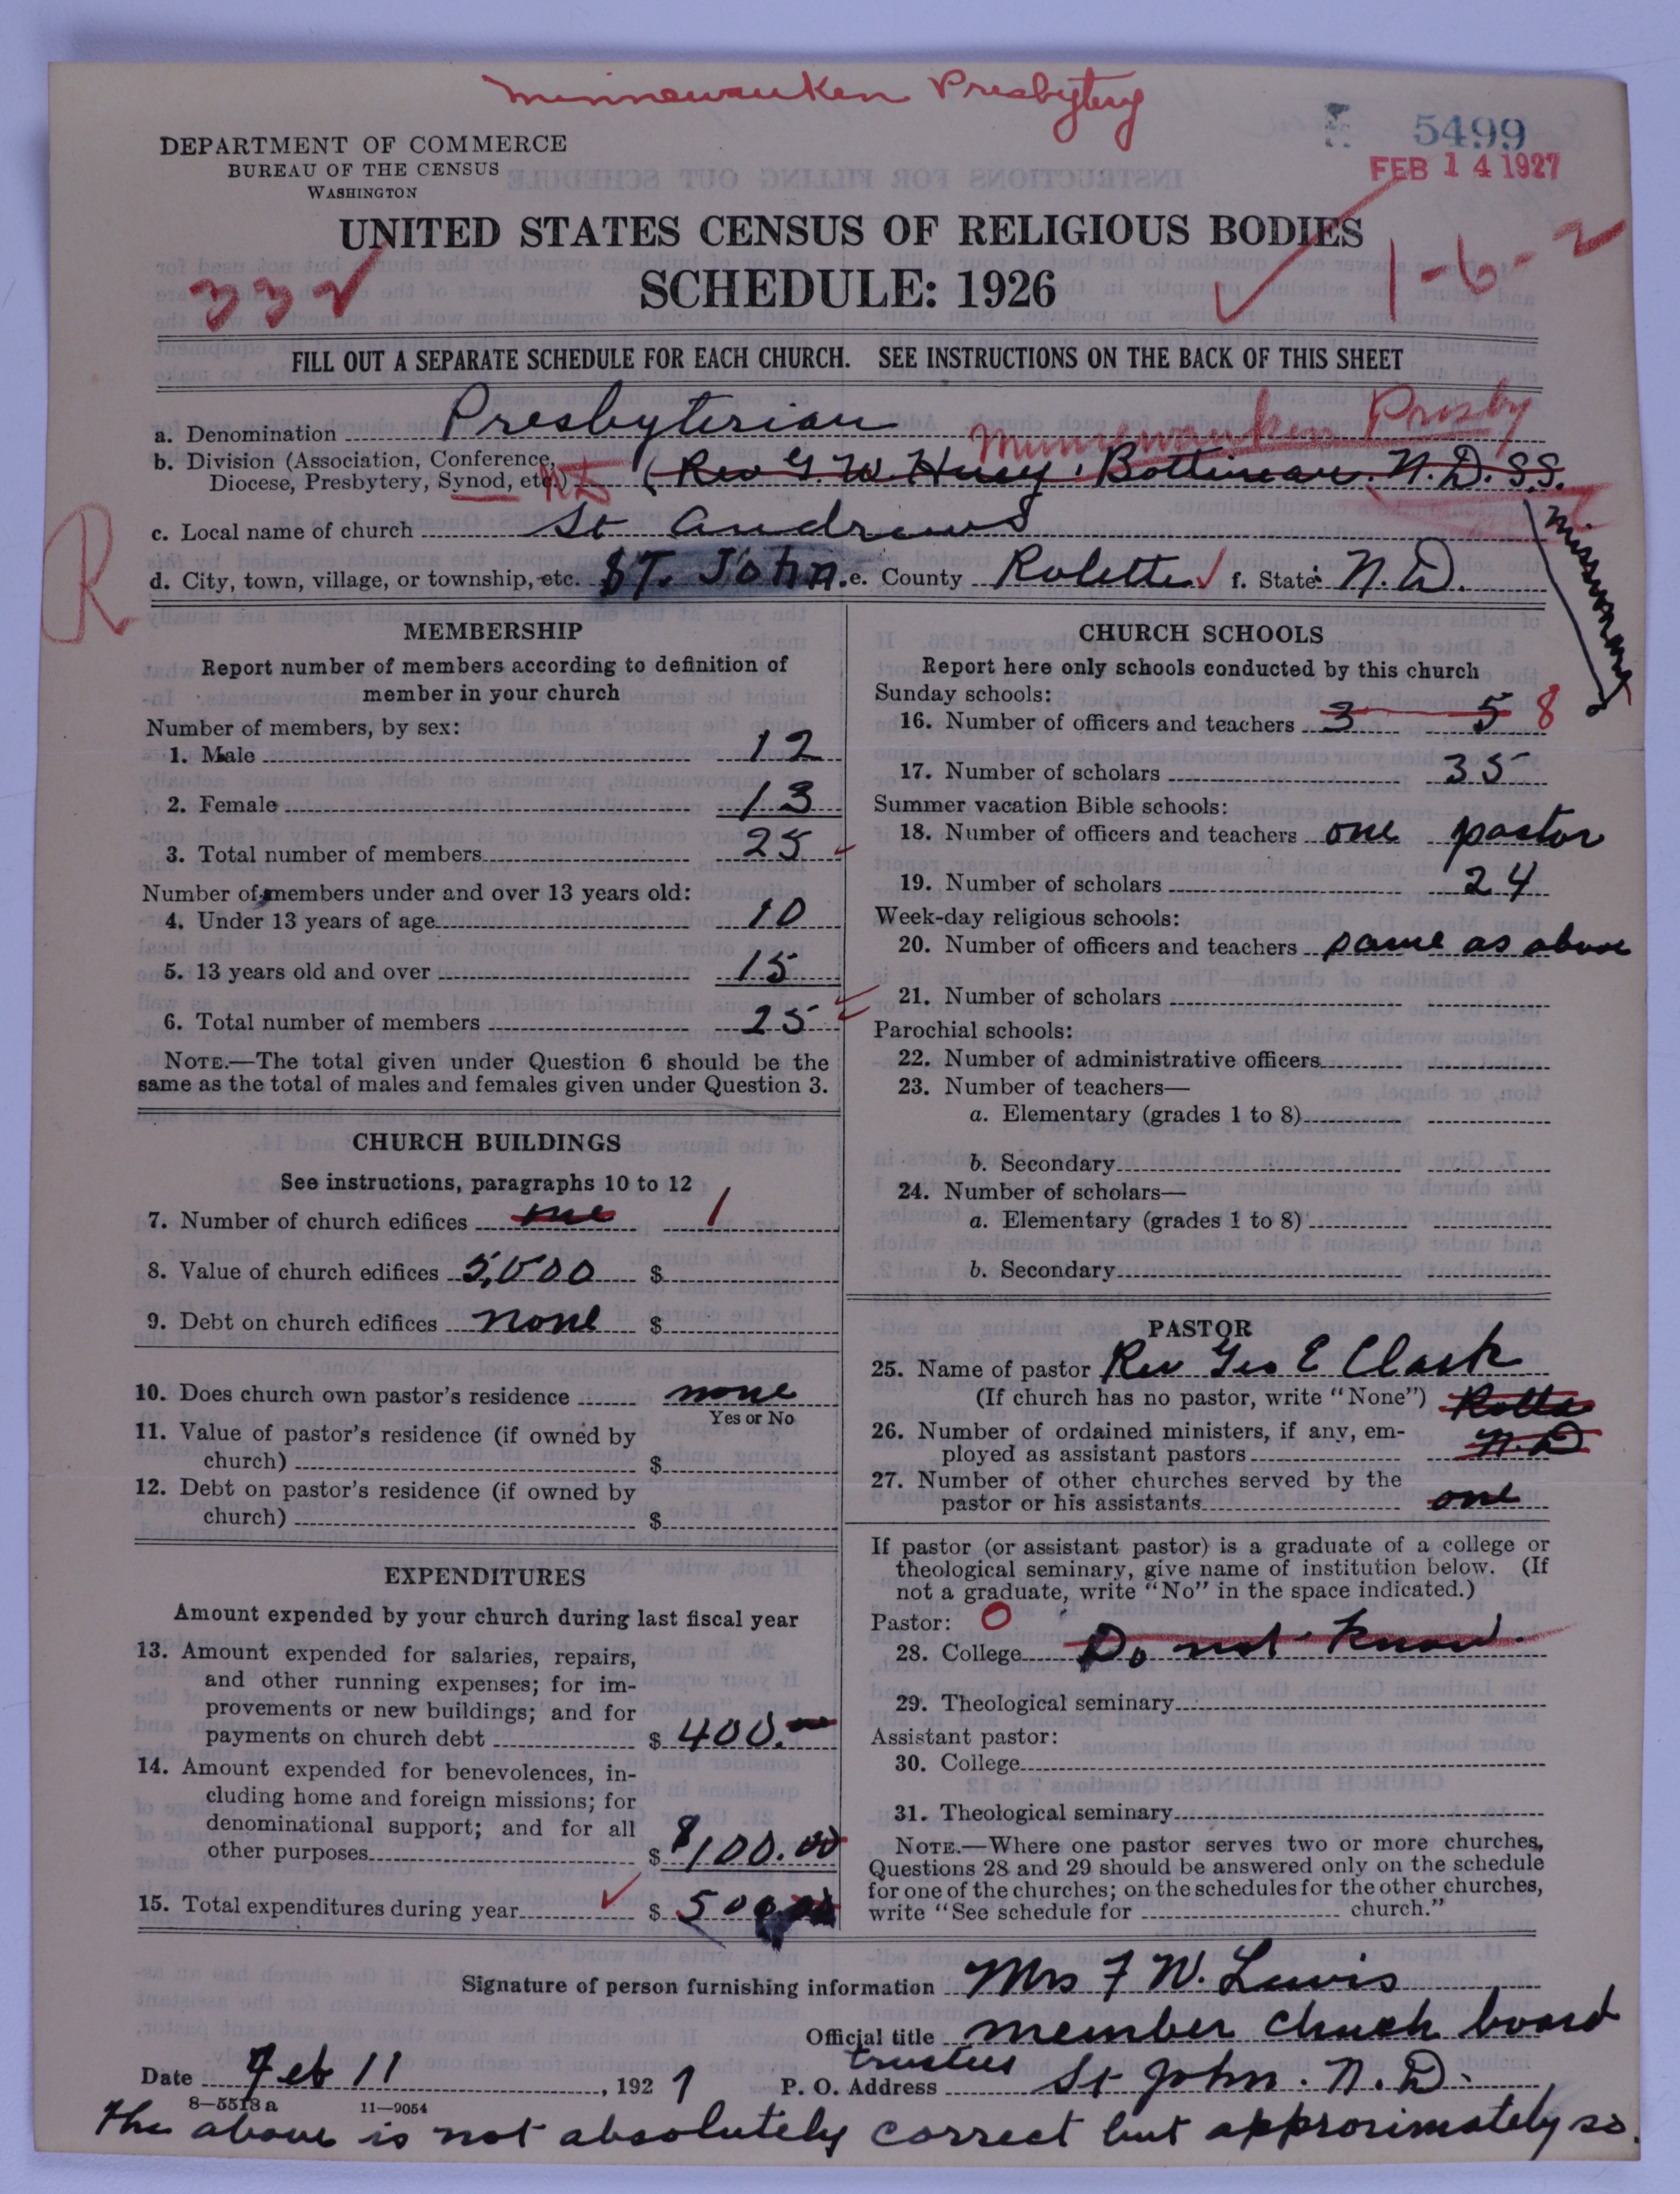 Minnewauken Presbytery
5499
FEB 14 1927
DEPARTMENT OF COMMERCE
BUREAU OF THE CENSUS
WASHINGTON
UNITED STATES CENSUS OF RELIGIOUS BODIES
SCHEDULE: 1926
332
1-6-2
FILL OUT A SEPARATE SCHEDULE FOR EACH CHURCH. SEE INSTRUCTIONS ON THE BACK OF THIS SHEET
a. Denomination Presbyterian
Minnewauken Presby
b. Division (Association, Conference,
Diocese, Presbytery, Synod, etc.) N D (Rev G. W. Bottineau. N.D. S.S.
Missionary
R
c. Local name of church St Andrews
d. City, town, village, or township, etc. ST. John. e. County Rolette f. State N. D.
MEMBERSHIP
Report number of members according to definition of
member in your church
Number of members, by sex:
1. Male 12
2. Female 13
3. Total number of members 25
Number of members under and over 13 years old:
4. Under 13 years of age 10
5. 13 years old and over 15
6. Total number of members 25
NOTE.—The total given under Question 6 should be the
same as the total of males and females given under Question 3.
CHURCH BUILDINGS
See instructions, paragraphs 10 to 12
7. Number of church edifices one 1
8. Value of church edifices 5,000 $
9. Debt on church edifices none $
10. Does church own pastor's residence none
Yes or No
11. Value of pastor's residence (if owned by
church) $
12. Debt on pastor's residence (if owned by
church) $
EXPENDITURES
Amount expended by your church during last fiscal year
13. Amount expended for salaries, repairs,
and other running expenses; for im-
provements or new buildings; and for
payments on church debt $ 400.
14. Amount expended for benevolences, in-
cluding home and foreign missions; for
denominational support; and for all
other purposes $ $100.00
15. Total expenditures during year $ 500.00
CHURCH SCHOOLS
Report here only schools conducted by this church
Sunday schools:
16. Number of officers and teachers 3 5 8
17. Number of scholars 35
Summer vacation Bible schools:
18. Number of officers and teachers one pastor
19. Number of scholars 24
Week-day religious schools:
20. Number of officers and teachers same as above
21. Number of scholars
Parochial schools:
22. Number of administrative officers
23. Number of teachers—
a. Elementary (grades 1 to 8)
b. Secondary
24. Number of scholars—
a. Elementary (grades 1 to 8)
b. Secondary
PASTOR
25. Name of pastor Rev Geo E Clark
(If church has no pastor, write "None") Rolla
26. Number of ordained ministers, if any, em-
ployed as assistant pastors N.D
27. Number of other churches served by the
pastor or his assistants one
If pastor (or assistant pastor) is a graduate of a college or
theological seminary, give name of institution below. (If
not a graduate, write "No" in the space indicated.)
Pastor: O
28. College Do not know.
29. Theological seminary
Assistant pastor:
30. College
31. Theological seminary
NOTE.—Where one pastor serves two or more churches,
Questions 28 and 29 should be answered only on the schedule
for one of the churches; on the schedules for the other churches,
write "See schedule for church."
Signature of person furnishing information Mrs F W. Lewis
Official title member church board
trustees
Date Feb 11, 1927 P. O. Address St John. N. D.
8—5518a 11—9054
The above is not absolutely correct but approximately so.